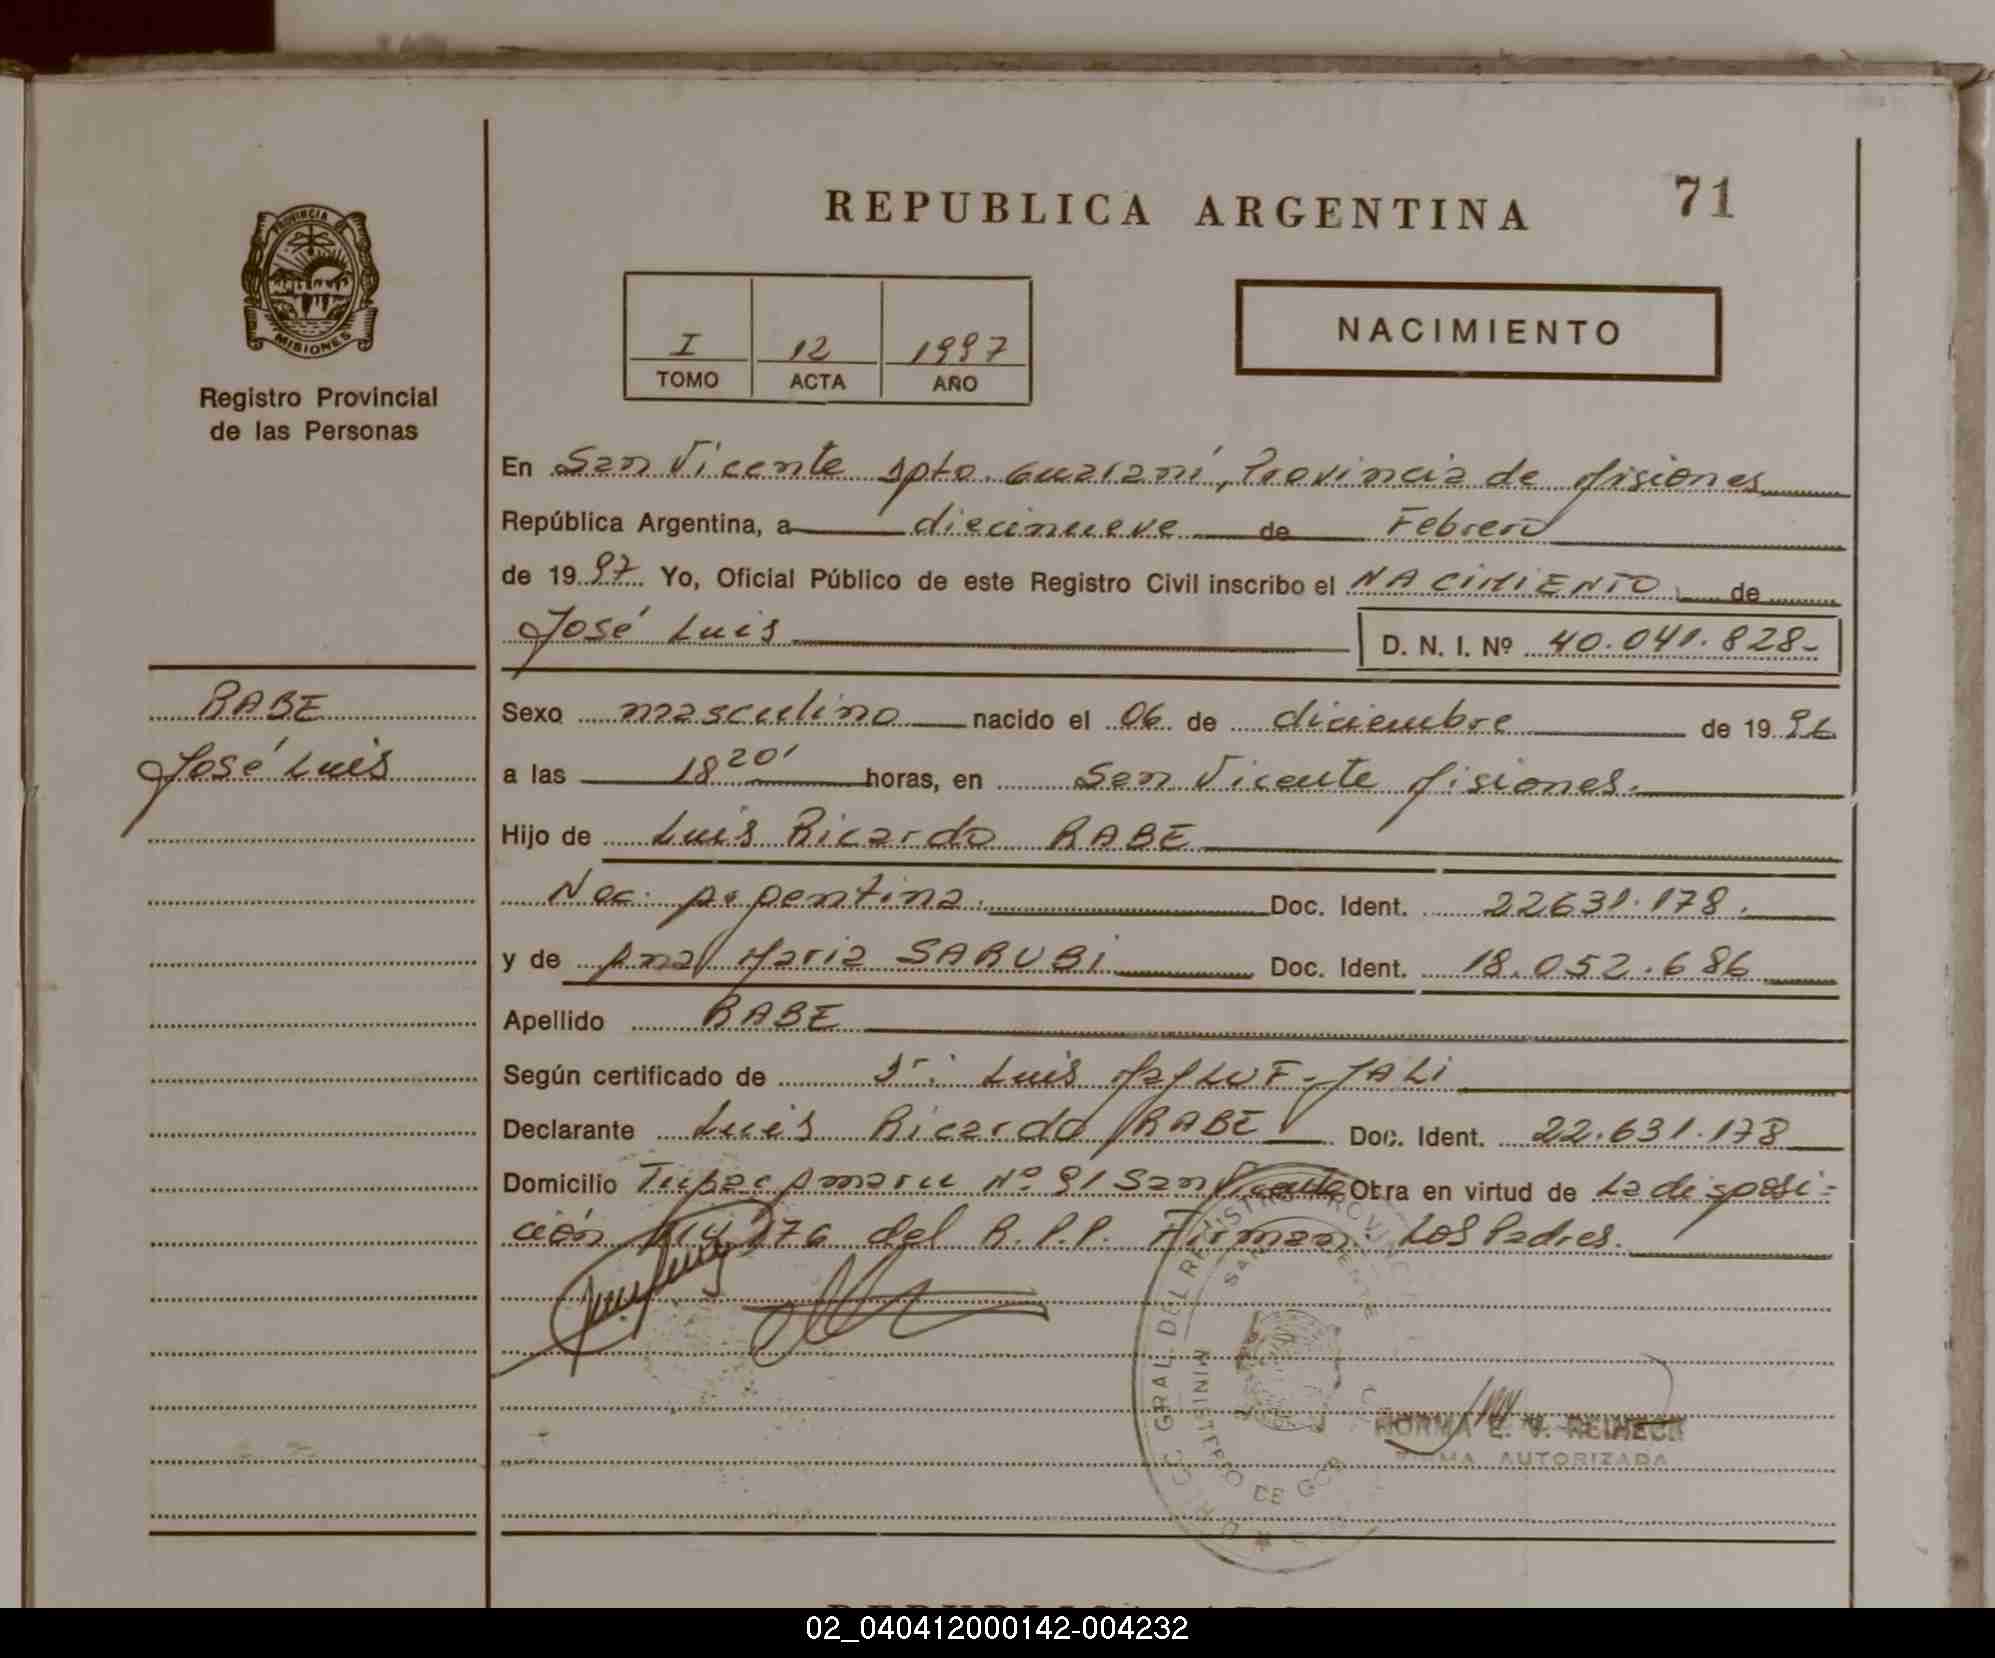 REPUBLICA ARGENTINA
71
PROVINCIA
MISIONES
Registro Provincial
de las Personas
I 12 1997
TOMO ACTA AÑO
NACIMIENTO
En San Vicente Dpto. Guaraní, Provincia de Misiones
República Argentina, a diecinueve de Febrero
de 1997 Yo, Oficial Público de este Registro Civil inscribo el NACIMIENTO de
José Luis D. N. I. Nº 40.041.828-
RABE
José Luis
Sexo masculino nacido el 06 de diciembre de 1996
a las 18 20' horas, en San Vicente Misiones.
Hijo de Luis Ricardo RABE
Nac. Argentina. Doc. Ident. 22631.178.
y de Ana Maria SARUBI Doc. Ident. 18.052.686
Apellido RABE
Según certificado de Dr. Luis JALI
Declarante Luis Ricardo RABE Doc. Ident. 22.631.178
Domicilio Tupac Amaru Nº 91 San Vicente Obra en virtud de La disposi=
ción 114/76 del R.P.P. Firman: Los Padres.
GRAL. DEL REGISTRO PROVINC
SAN VICENTE
MINISTERIO DE GOB
NORMA E. V. REIHECK
FIRMA AUTORIZADA
REPUBLICA ARGENTINA
02_040412000142-004232